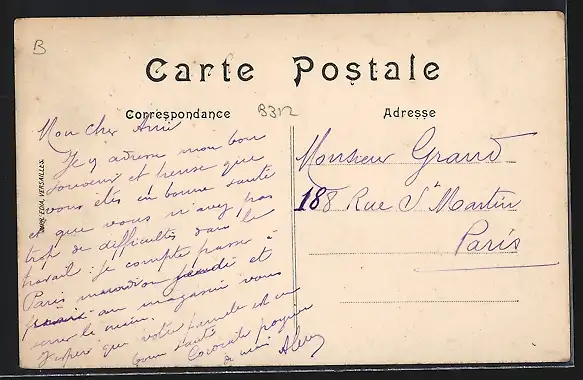 B
Carte Postale
Correspondance
B312
Adresse
Mon cher Ami
Je y adresse mon bon
souvenir et pense que
vous étés en bonne santé
et que vous n'avez pas
trop de difficultés dans le
travail. je compte passer à
Paris jeudi et
au magasin vous
serrer la main.
J'espère que votre famille est en
bonne santé
Cordiale poignée
de main
Monsieur Grand
188 Rue St Martin
Paris
EDIA, VERSAILLES.